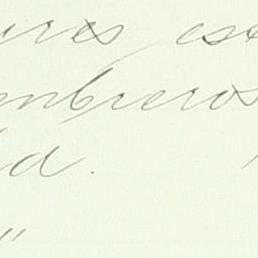 ures ese
mbreros
id.
"